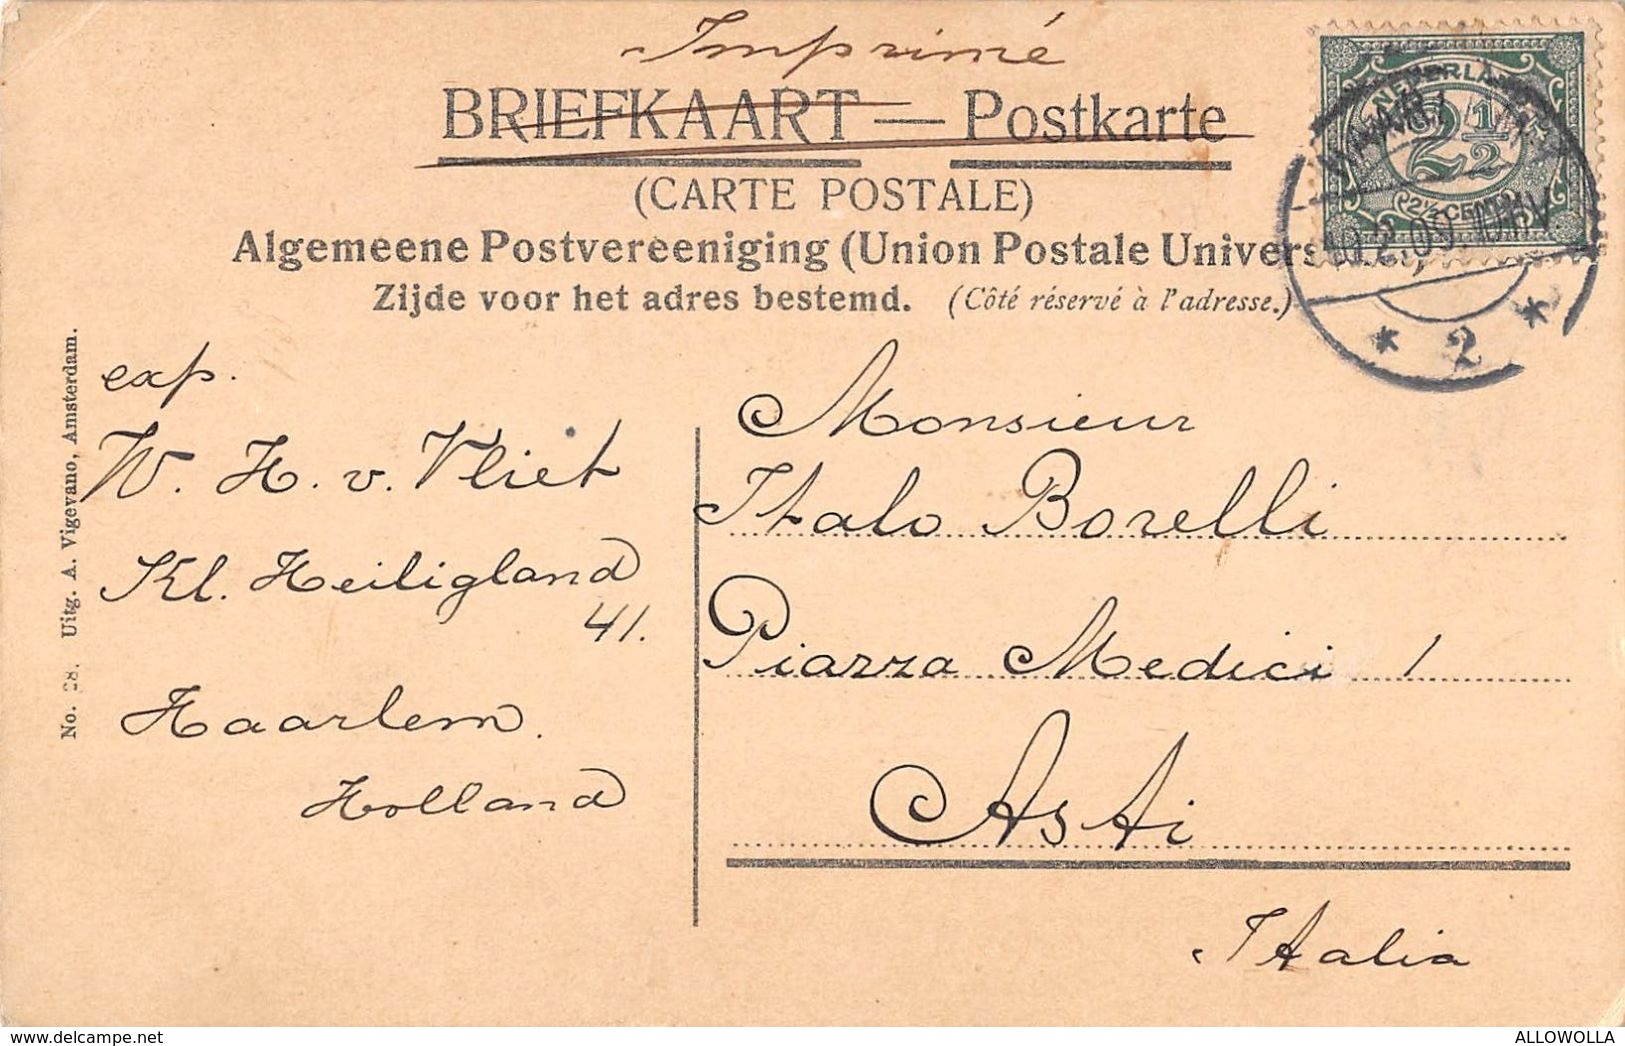 Imprimé
BRIEFKAART — Postkarte
(CARTE POSTALE)
Algemeene Postvereeniging (Union Postale Univers
Zijde voor het adres bestemd. (Côté réservé à l'adresse.)
2½
2½ CENT
10.2.09.10-11V
* 2 *
exp.
W. H. v. Vliet
Kl. Heiligland
41.
Haarlem.
Holland
Monsieur
Italo Borelli
Piazza Medici 1
Asti
Italia
No. 28. Uitg. A. Vigevano, Amsterdam.
https://www.delcampe.net
ALLOWOLLA